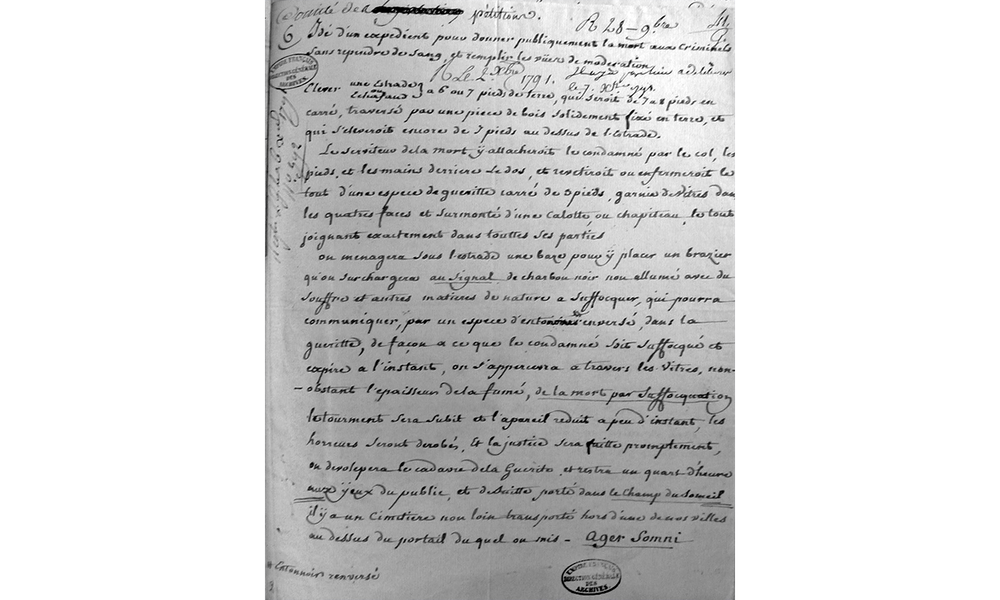 Comité de pétitions.
R 28 – 9bre
6 Idé d'un expedient pour donner publiquement la mort aux Criminels
sans repandre de sang, et remplir les vües de moderation
R Le 2 Xbre 1791.
Elever une Estrade ou Echafaud a 6 ou 7 pieds de terre, qui seroit de 7 a 8 pieds en
carré, traversé par une piece de bois solidement fixé en terre, et
qui s'eleveroit encore de 7 pieds au dessus de l'Estrade.
Le serviteur de la mort ÿ attacheroit le condamné par le col, les
pieds, et les mains derriere Le dos, et revetiroit ou enfermeroit le
tout d'une espece de gueritte carré de 3 pieds, garnie de Vitres dans
les quatres faces et surmonté d'une Calotte, ou chapiteau, le tout
joignant exactement dans touttes ses parties
on menagera sous l'estrade une baze pour ÿ placer un brazier
qu'on surchargera au signal de charbon noir non ellumé avec du
souffre et autres matieres de nature a suffocquer, qui pourra
communiquer, par un espece d'entonnoir renversé, dans la
gueritte, de façon a ce que le condamné soit suffocqué et
expire a l'instant, on s'appercevra a travers les Vitres, non-
obstant l'epaisseur de la fumé, de la mort par suffocquation
le tourment sera subit et l'apareil reduit a peu d'instant, les
horreurs seront derobés, Et la justice sera faitte promptement,
on devolepera le cadavre de la Guerite et restra un quart d'heure
aux ÿeux du public, et de suitte porté dans le Champ du Someil
il ÿ a un Cimetiere non loin transporté hors d'une de nos villes
au dessus du portail du quel on mis – Ager Somni
* Entonnoir renversé
EMPIRE FRANÇAIS
DIRECTION GÉNÉRALE
DES
ARCHIVES